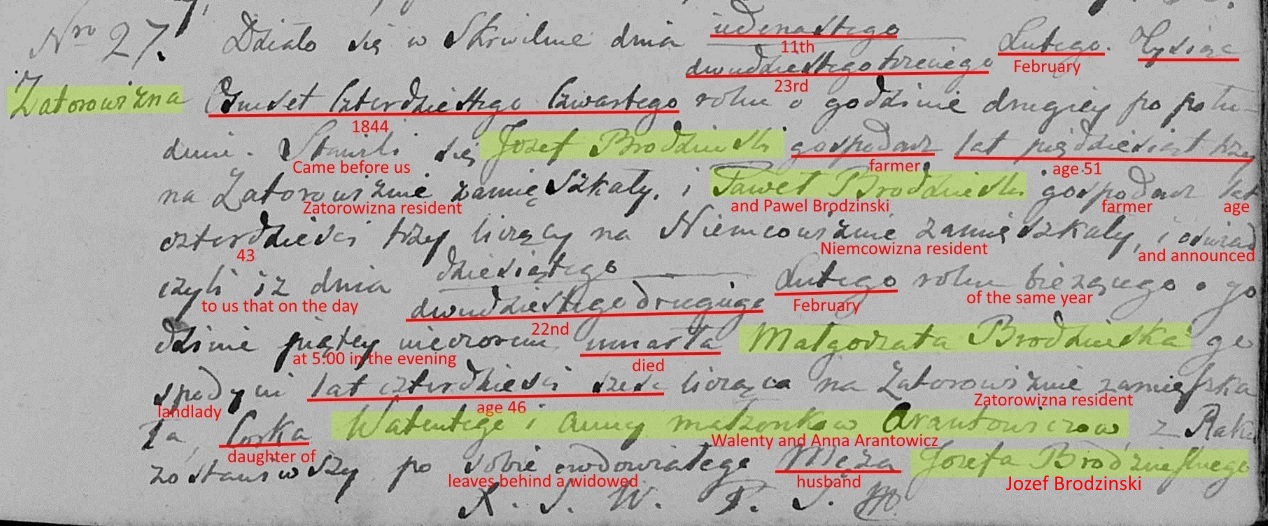 Nro 27. Działo się w Skrwilnie dnia jedenastego Lutego. Tysiąc
11th
dwudziestego trzeciego
February
23rd
Zatorowizna Ośmset Czterdziestego Czwartego roku o godzinie drugiey po połu-
1844
dniu. Stawili się Jozef Brodzinski gospodarz lat pięćdziesiąt trzy
Came before us farmer age 51
na Zatorowiznie zamięszkały, i Paweł Brodzinski gospodarz lat
Zatorowizna resident and Pawel Brodzinski farmer age
czterdzieści trzy liczący na Niemcowiznie zamięszkały, i oświad
43 Niemcowizna resident and announced
dziesiątego
czyli iż dnia dwudziestego drugiego Lutego roku bieżącego o go
to us that on the day 22nd February of the same year
dzinie piątey wieczorem umarła Małgorzata Brodzinska go
at 5:00 in the evening died
spodyni lat czterdzieści sześć licząca na Zatorowiznie zamięszka
landlady age 46 Zatorowizna resident
ła, Corka Walentego i Anny małżonkow Arantowiczow z
daughter of Walenty and Anna Arantowicz
zostawiwszy po sobie owdowiałego Męża Jozefa Brodzinskiego
leaves behind a widowed husband Jozef Brodzinski